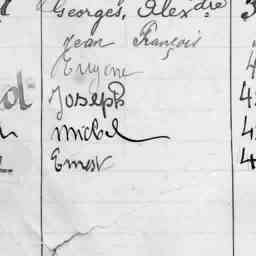 Georges, Alexdre
Jean François
Eugène
Joseph
Michel
Ernest